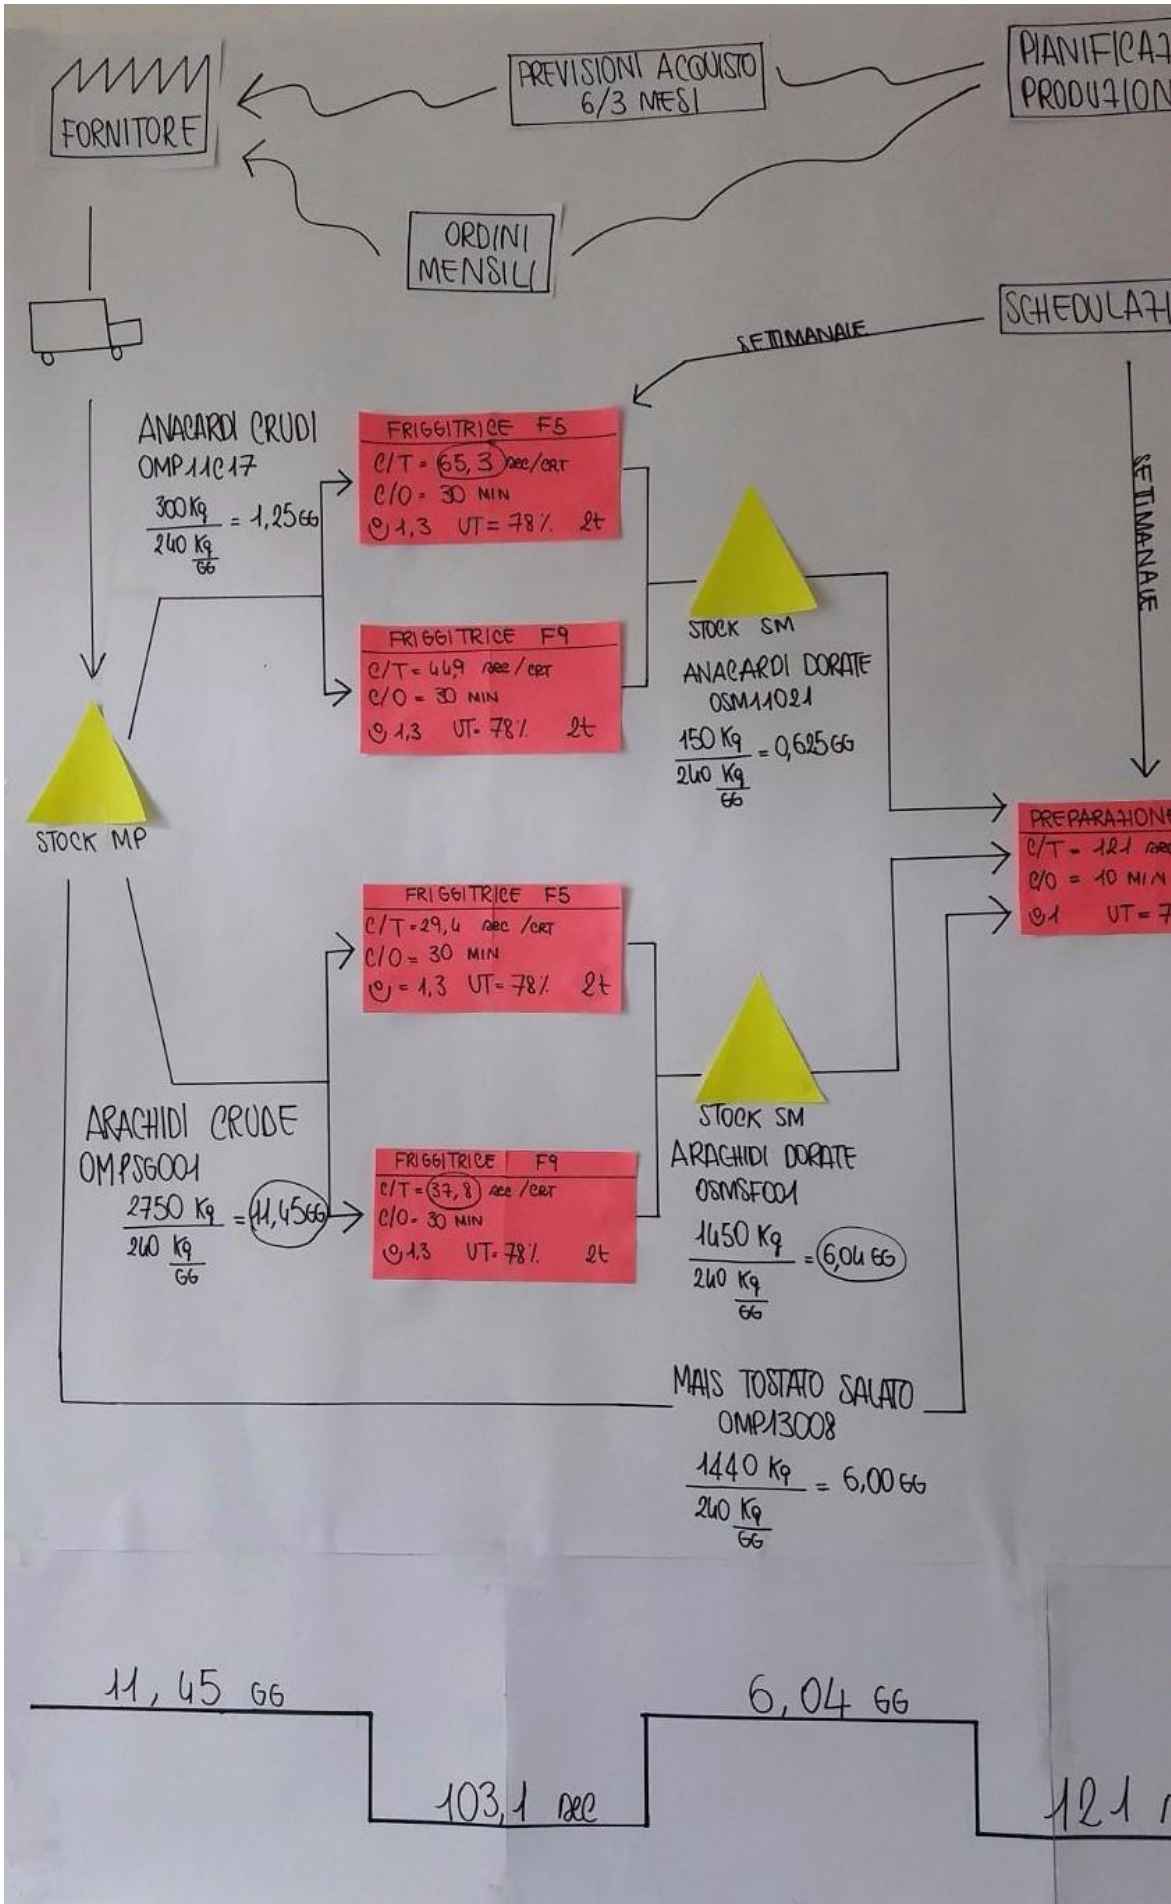 FORNITORE
PREVISIONI ACQUISTO
6/3 MESI
PIANIFICAZ
PRODUZION
ORDINI
MENSILI
SCHEDULAZI
SETTIMANALE
SETTIMANALE
ANACARDI CRUDI
OMP11C17
300 Kg
240 Kg
GG
= 1,25 GG
FRIGGITRICE F5
C/T = 65,3 sec/CRT
C/O = 30 MIN
1,3 UT = 78% 2t
FRIGGITRICE F9
C/T = 44,9 sec/CRT
C/O = 30 MIN
1,3 UT = 78% 2t
STOCK SM
ANACARDI DORATE
OSM11021
150 Kg
240 Kg
GG
= 0,625 GG
STOCK MP
PREPARAZIONE
C/T = 121 sec
C/O = 10 MIN
1 UT = 7
FRIGGITRICE F5
C/T = 29,4 sec/CRT
C/O = 30 MIN
= 1,3 UT = 78% 2t
STOCK SM
ARACHIDI CRUDE
OMPSG001
2750 Kg
240 Kg
GG
= 11,45 GG
FRIGGITRICE F9
C/T = 37,8 sec/CRT
C/O = 30 MIN
1,3 UT = 78% 2t
ARACHIDI DORATE
OSMSF001
1450 Kg
240 Kg
GG
= 6,04 GG
MAIS TOSTATO SALATO
OMP13008
1440 Kg
240 Kg
GG
= 6,00 GG
11,45 GG
6,04 GG
103,1 sec
121